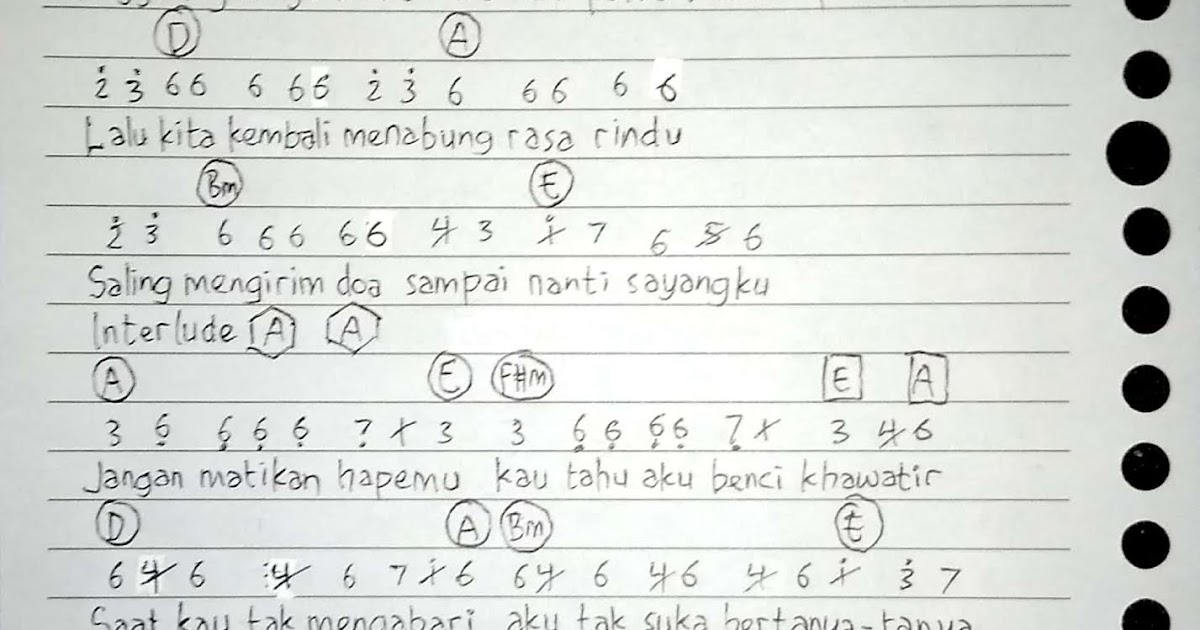 D A
2̇ 3̇ 6 6 6 6 6 2̇ 3̇ 6 6 6 6 6
Lalu kita kembali menabung rasa rindu
Bm E
2̇ 3̇ 6 6 6 6 6 4̸ 3 1̸̇ 7 6 5̸ 6
Saling mengirim doa sampai nanti sayangku
Interlude A A
A E F#m E A
3 6̣ 6̣ 6̣ 6̣ 7̣ 1̸ 3 3 6̣ 6̣ 6̣ 6̣ 7̣ 1̸ 3 4̸ 6
Jangan matikan hapemu kau tahu aku benci khawatir
D A Bm E
6 4̸ 6 4̸ 6 7 1̸̇ 6 6 4̸ 6 4̸ 6 4̸ 6 1̸̇ 3̇ 7
Saat kau tak mengabari aku tak suka bertanya-tanya